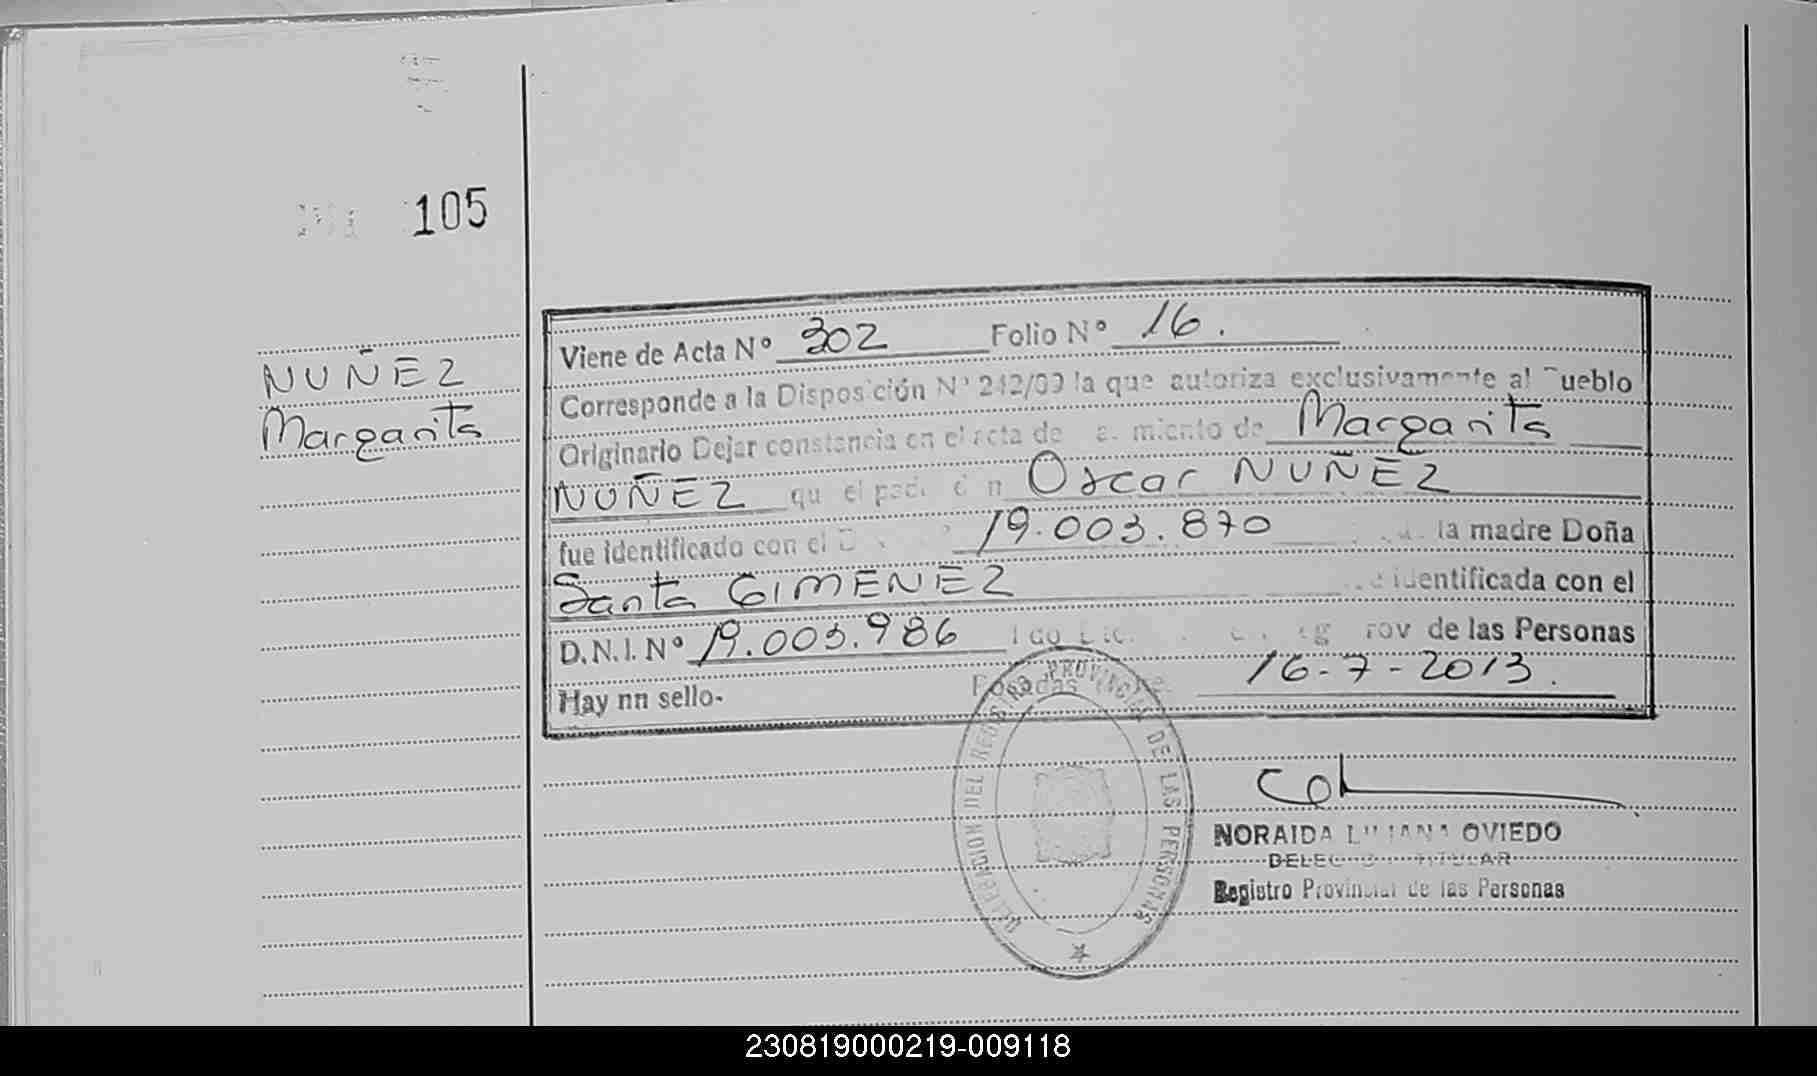 105
NUÑEZ
Margarita
Viene de Acta Nº 302 Folio Nº 16.
Corresponde a la Disposición Nº 242/09 la que autoriza exclusivamente al Pueblo
Originario Dejar constancia en el acta de miento de Margarita
NUÑEZ qu el pad Oscar NUÑEZ
fue identificado con el D 19.003.870 la madre Doña
Santa GIMENEZ identificada con el
D.N.I. Nº 19.003.986 rov de las Personas
Hay nn sello- Posadas 16-7-2013.
DELEGACION DEL REGISTRO PROVINCIAL DE LAS PERSONAS
NORAIDA LILIANA OVIEDO
DELEG TITULAR
Registro Provincial de las Personas
230819000219-009118